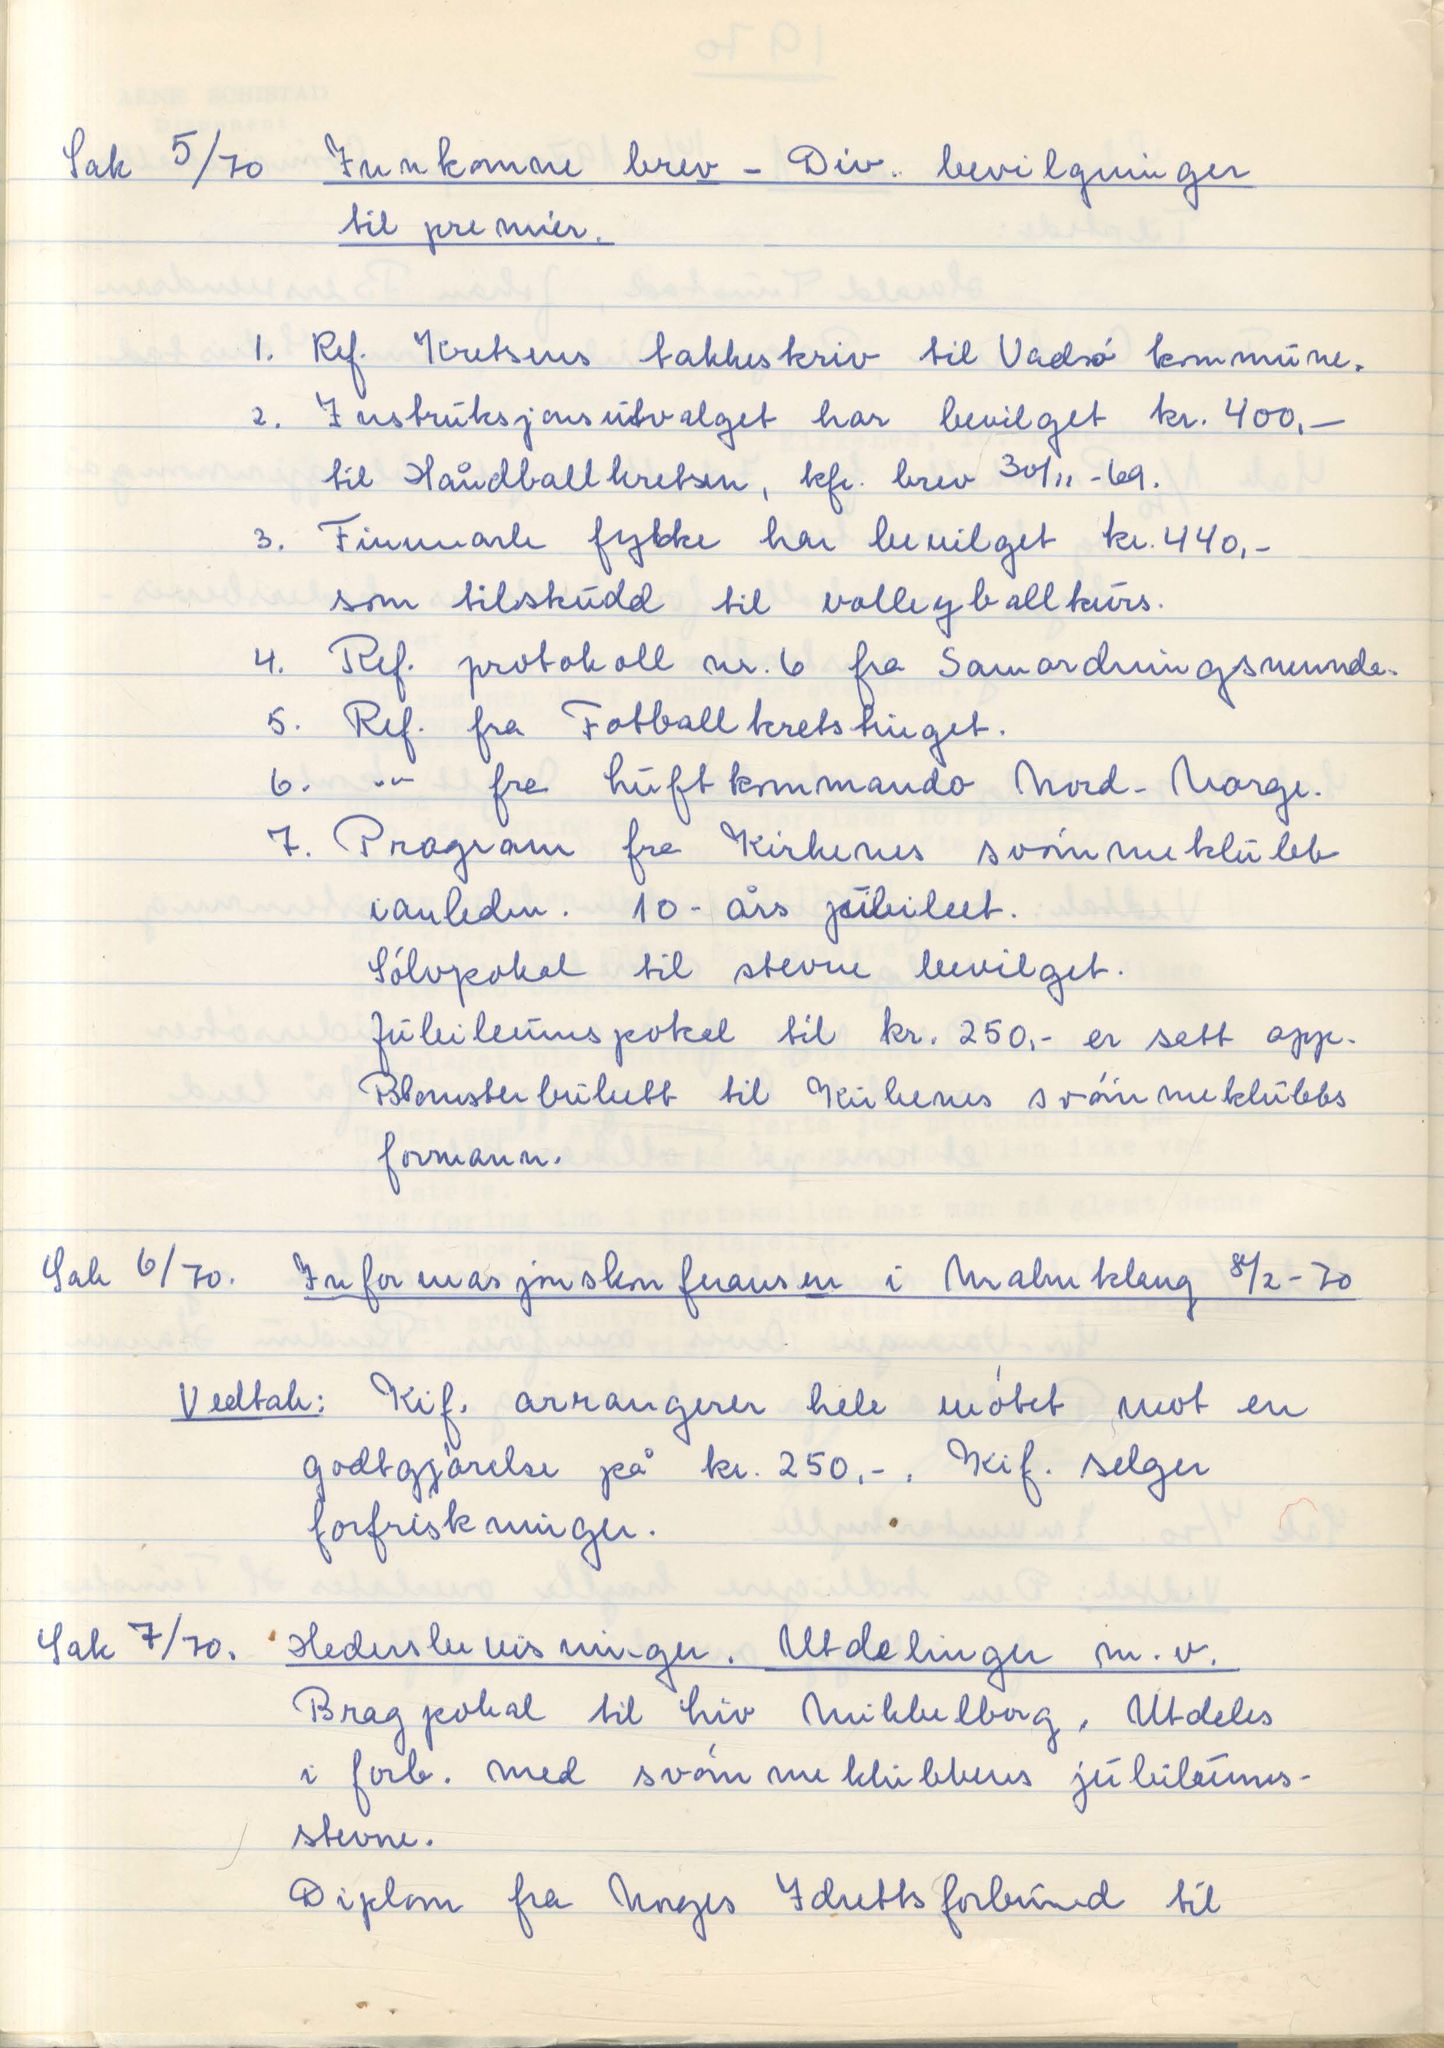 Sak 5/70 Innkomne brev - Div. bevilgninger
til premier.
1. Ref. Kretsens takkeskriv til Vadsø kommune.
2. Instruksjonsutvalget har bevilget kr. 400,-
til Håndballkretsen, kfr. brev 30/11-69.
3. Finnmark fylke har bevilget kr. 440,-
som tilskudd til volleyballkurs.
4. Ref. protokoll nr. 6 fra Samordningsnemnda.
5. Ref. fra Fotballkretstinget.
6. -"- fra Luftkommando Nord-Norge.
7. Program fra Kirkenes svømmeklubb
i anledn. 10-års jubileet.
Sølvpokal til stevne bevilget.
Jubileumspokal til kr. 250,- er satt opp.
Blomsterbukett til Kirkenes svømmeklubbs
formann.
Sak 6/70. Informasjonskonferansen i Malmklang 8/2-70
Vedtak: Kif. arrangerer hele møtet mot en
godtgjørelse på kr. 250,-. Kif. selger
forfriskninger.
Sak 7/70. Hedersbevisninger. Utdelinger m.v.
Bragpokal til Liv Mikkelborg. Utdeles
i forb. med svømmeklubbens jubileums-
stevne.
Diplom fra Norges Idrettsforbund til